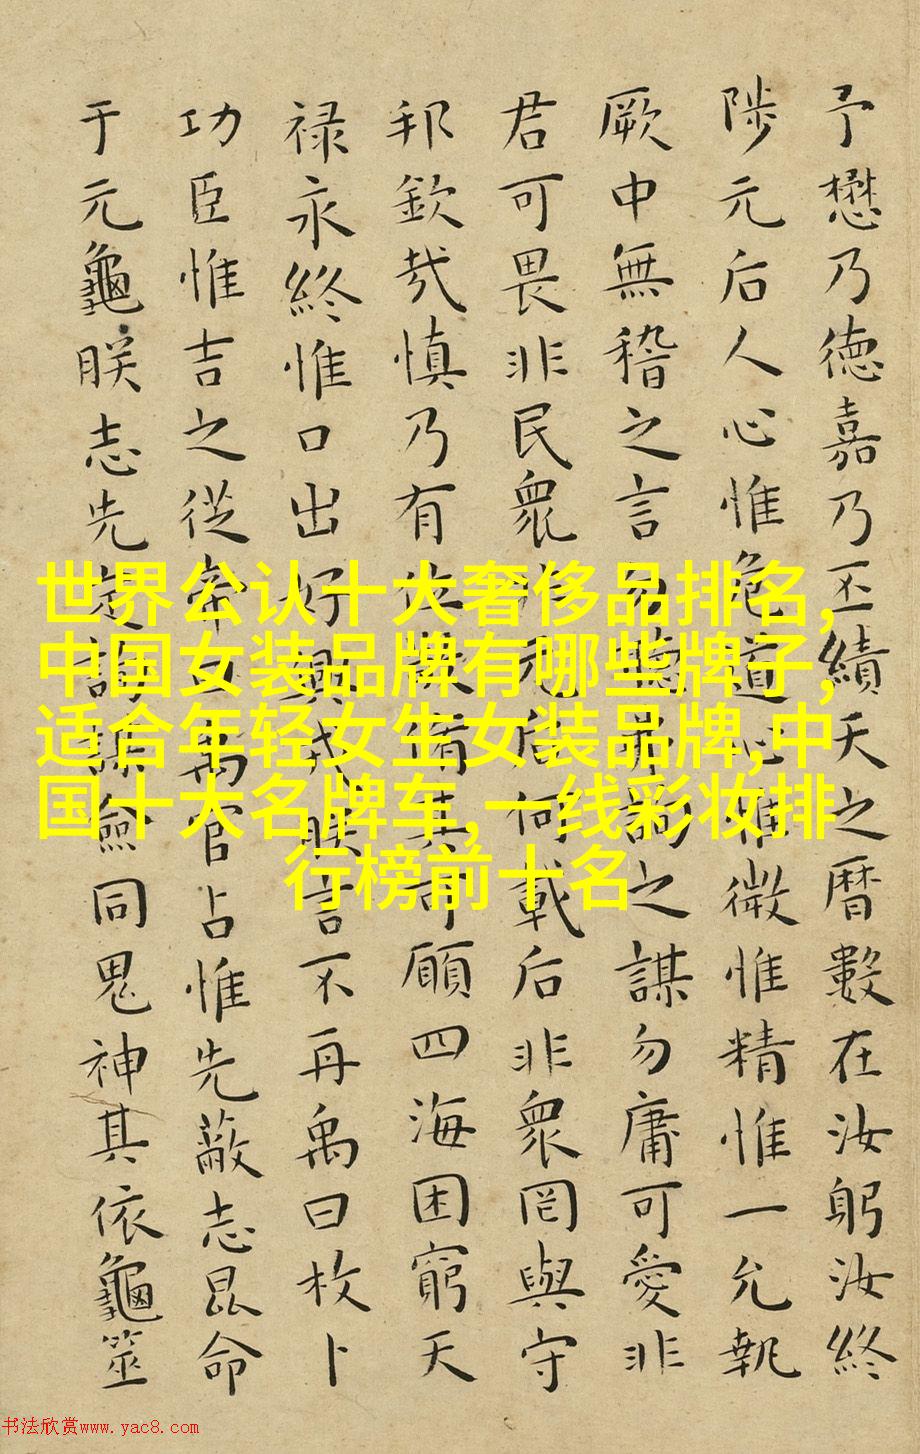 予懋乃德嘉乃丕績天之曆數在汝躬汝終
陟元后人心惟危道心惟微惟精惟一允執
厥中無稽之言勿聽弗詢之謀勿庸可愛非
君可畏非民衆非元后何戴后非衆罔與守
邦欽哉慎乃有位敬脩其可願四海困窮天
禄永終惟口出好興戎朕言不再禹曰枚卜
功臣惟吉之從帝曰禹官占惟先蔽志昆命
于元龜朕志先定詢謀僉同鬼神其依龜筮
世界公认十大奢侈品排名,
中国女装品牌有哪些牌子,
适合年轻女生女装品牌,中
国十大名牌车,一线彩妆排
行榜前十名
书法欣赏www.yac8.com